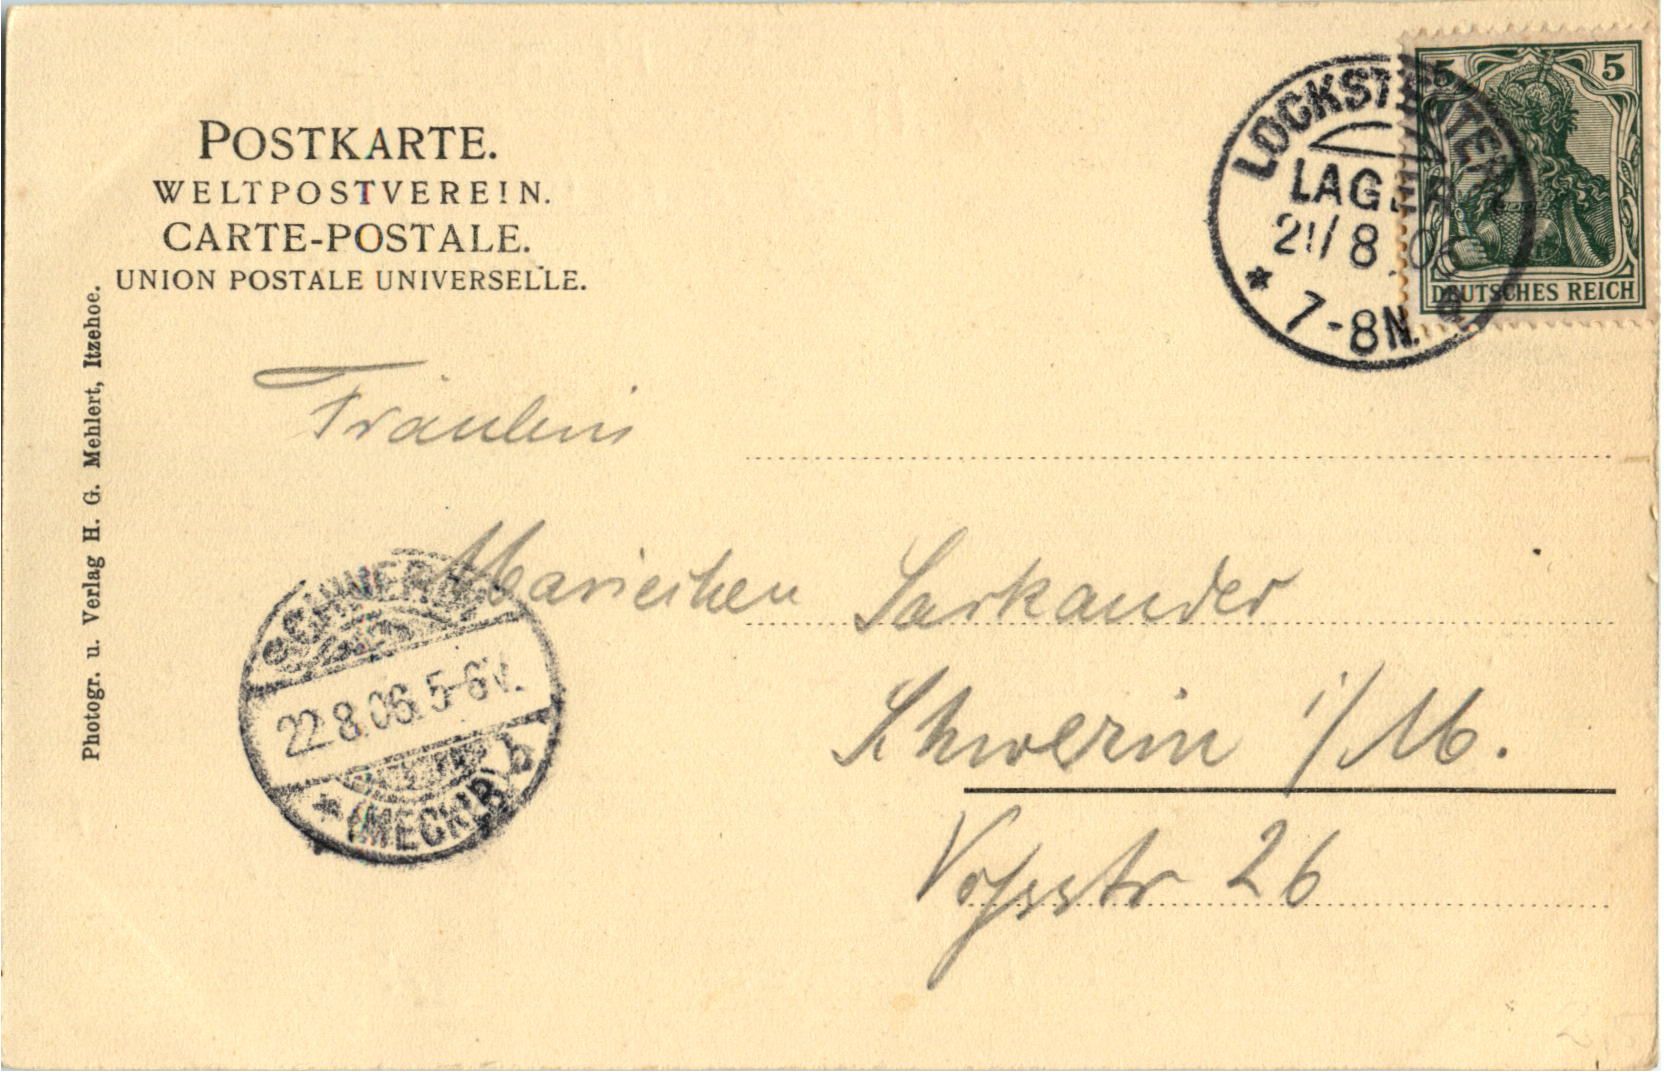 POSTKARTE.
WELTPOSTVEREIN.
CARTE-POSTALE.
UNION POSTALE UNIVERSELLE.
Photogr. u. Verlag H. G. Mehlert, Itzehoe.
LOCKSTEDTER
LAGER
21/8.06
* 7-8N.
5 5
DEUTSCHES REICH
Fräulein
Mariechen Sarkander
Schwerin i/M.
Vossstr 26
SCHWERIN
22.8.06. 5-6V.
* (MECKLB) b